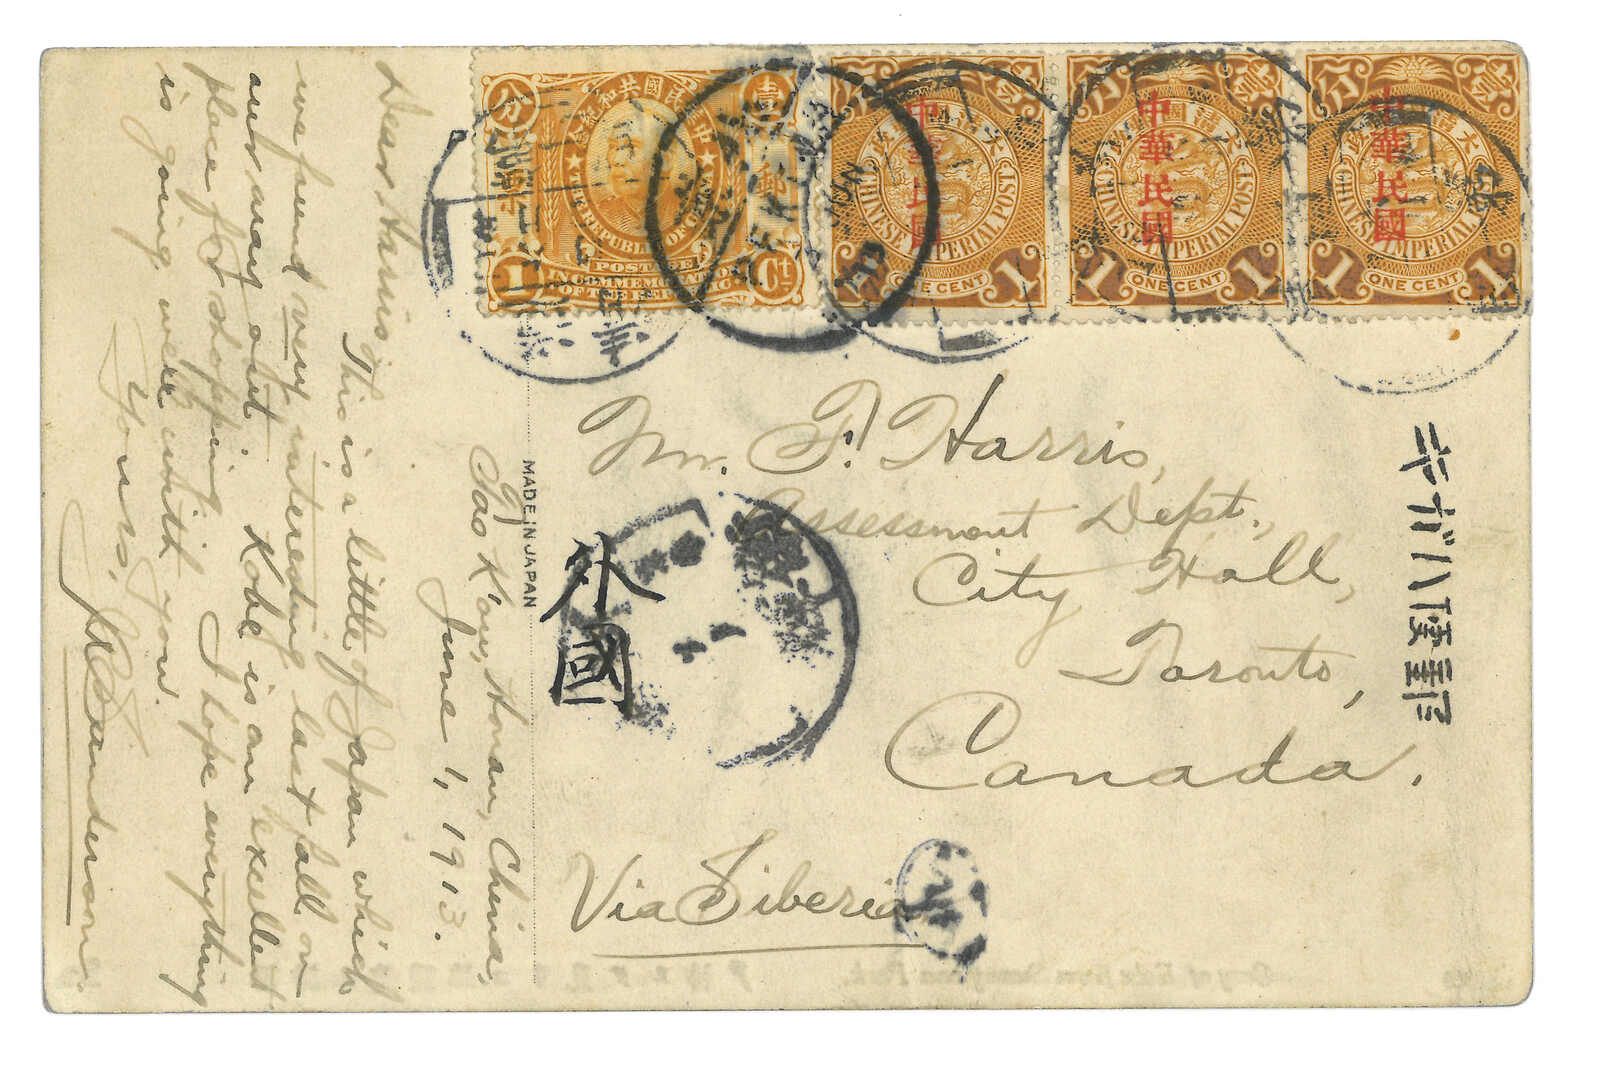 Tao K'ou, Honan, China,
June 1, 1913.
Dear Harris;
This is a little of Japan which
we found very interesting last fall on
our way out. Kobe is an excellent
place for shopping. I hope everything
is going well with you.
Yours,
Saunderson.
MADE IN JAPAN
Mr. F. Harris,
Assessment Dept.,
City Hall,
Toronto,
Canada.
Via Siberia
外國
中華民國共和紀念
分
壹
郵
THE REPUBLIC OF CHINA
POSTAGE
IN COMMEMORATION
OF THE REPUBLIC
1
Ct.
PEKING
中華民國
CHINESE IMPERIAL POST
1 ONE CENT 1
中華民國
CHINESE IMPERIAL POST
1 ONE CENT 1
中華民國
CHINESE IMPERIAL POST
1 ONE CENT 1